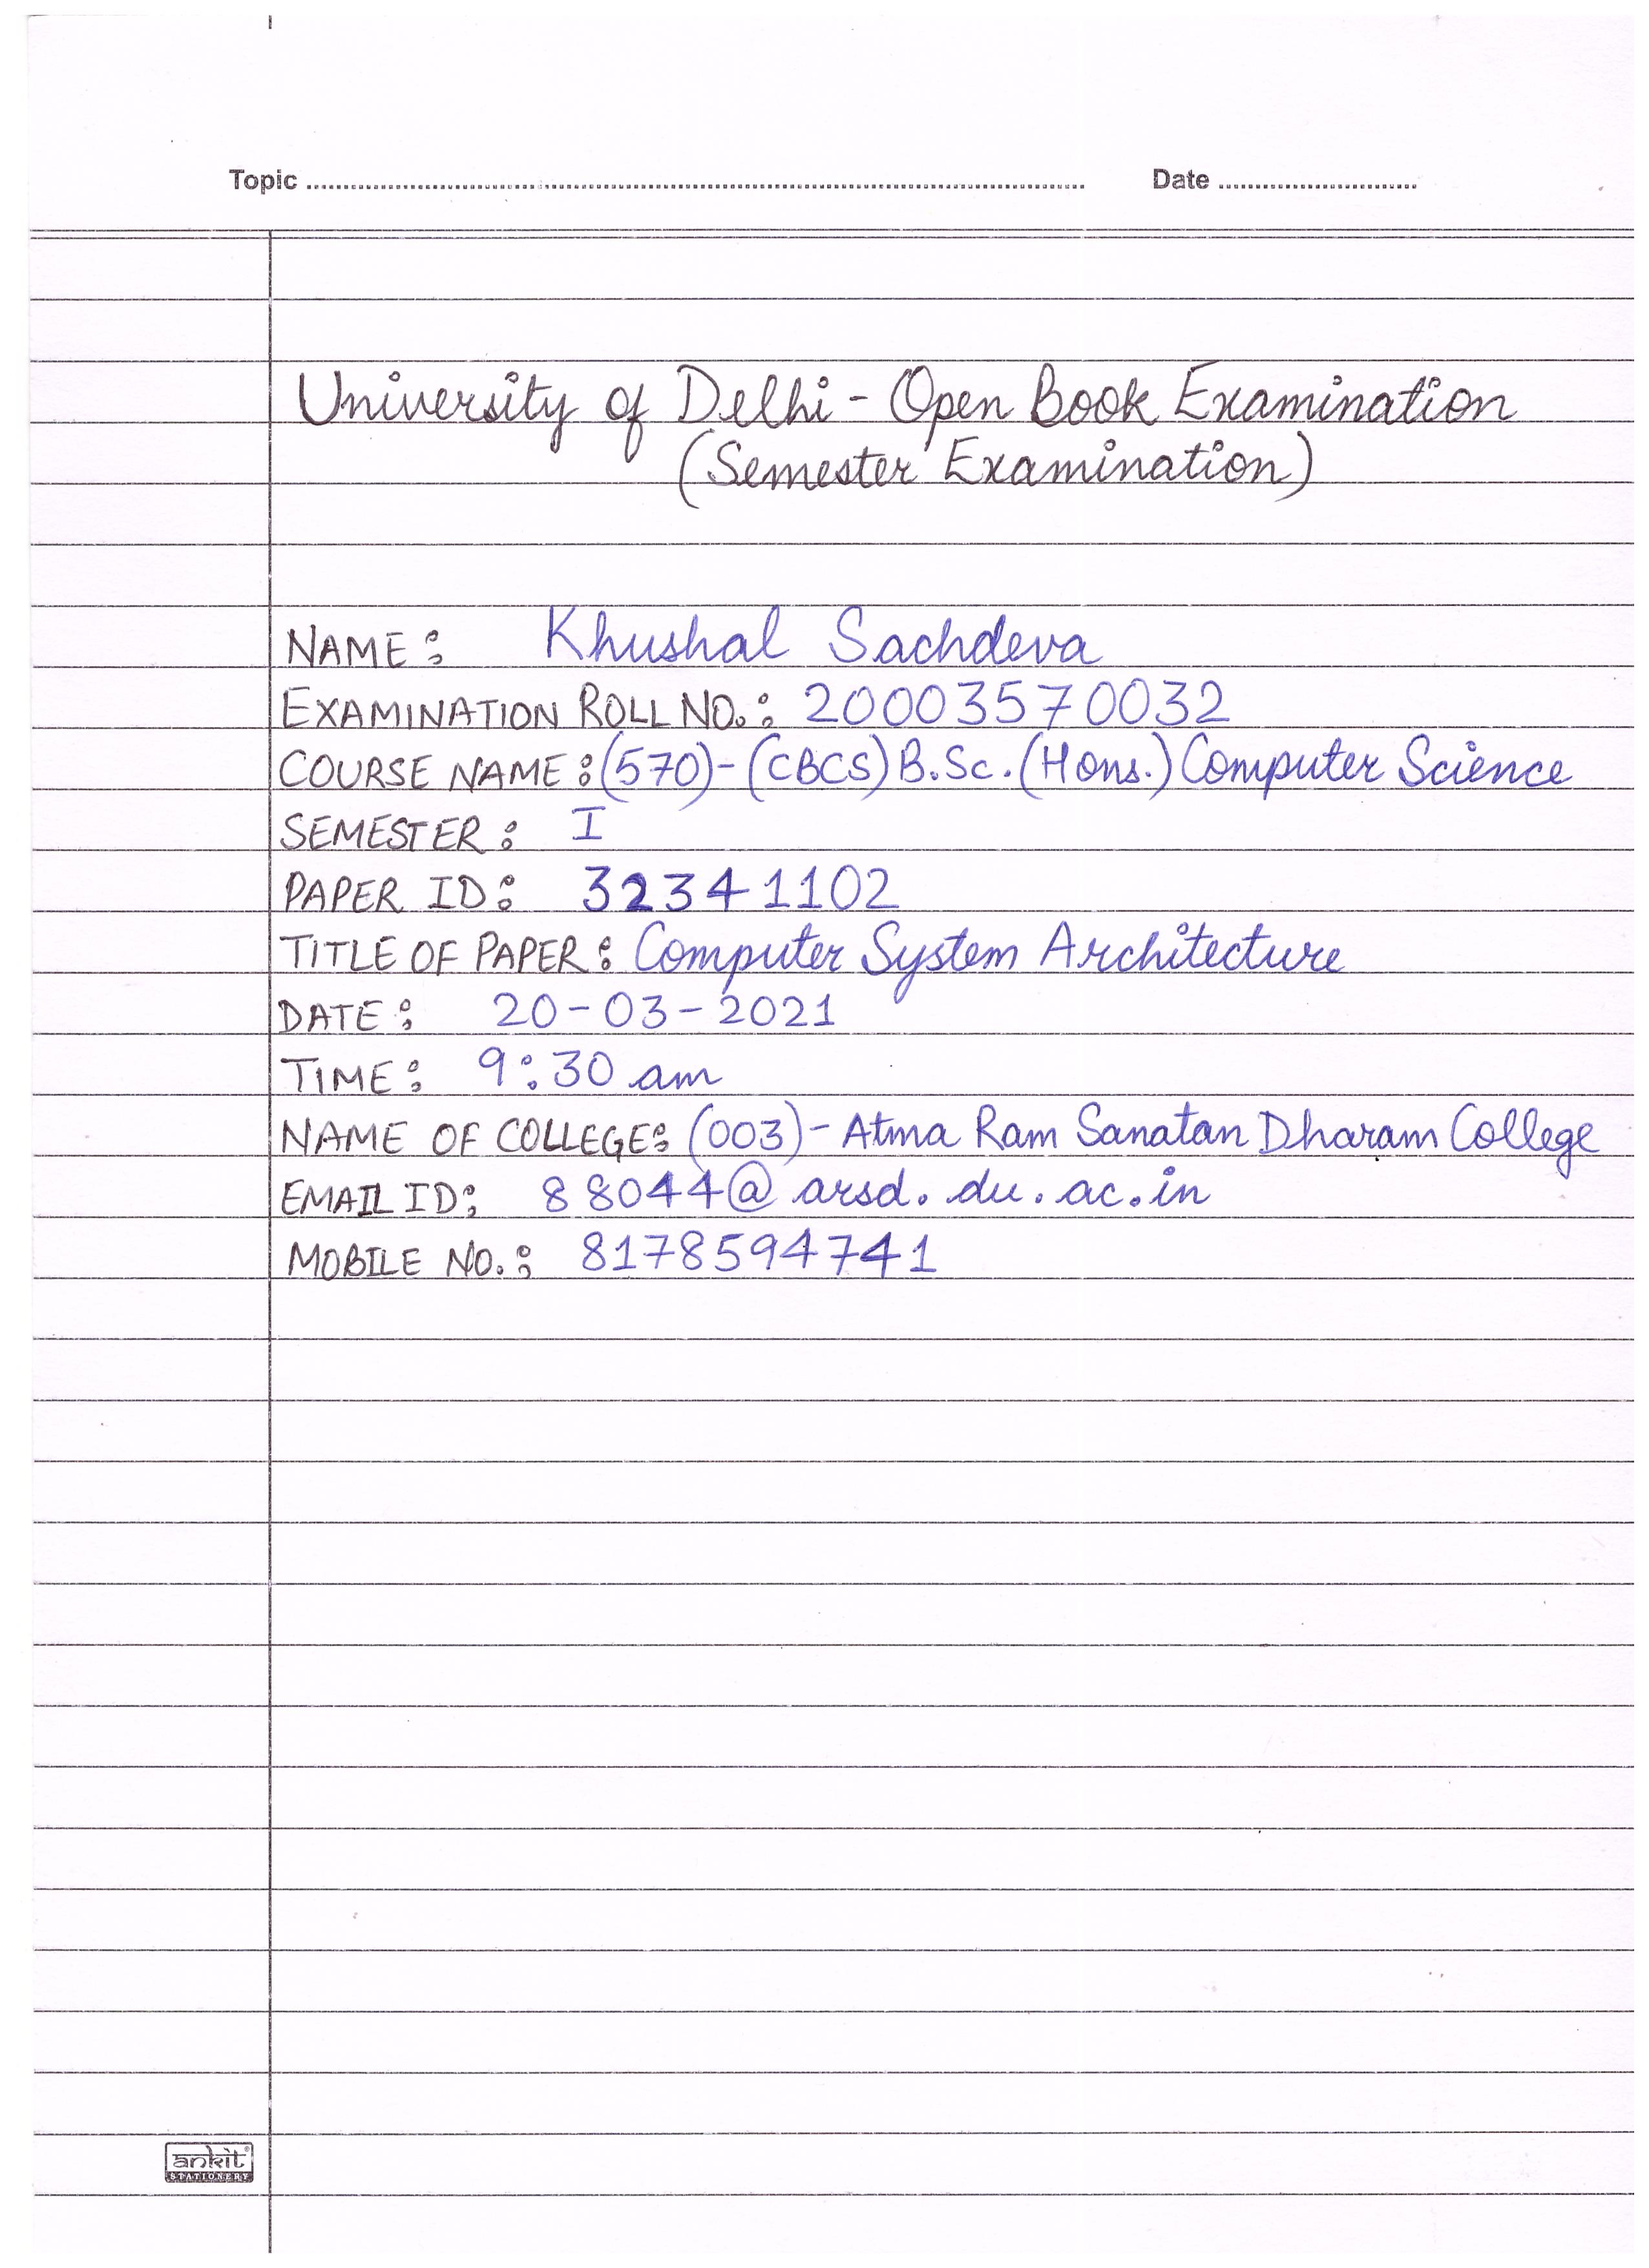 Topic ........................ Date ............
University of Delhi - Open Book Examination
(Semester Examination)
NAME : Khushal Sachdeva
EXAMINATION ROLL NO. : 20003570032
COURSE NAME : (570)-(CBCS) B.Sc. (Hons.) Computer Science
SEMESTER : I
PAPER ID : 32341102
TITLE OF PAPER : Computer System Architecture
DATE : 20-03-2021
TIME : 9:30 am
NAME OF COLLEGE : (003)- Atma Ram Sanatan Dharam College
EMAIL ID : 88044@arsd.du.ac.in
MOBILE NO. : 8178594741
ankit
STATIONERY